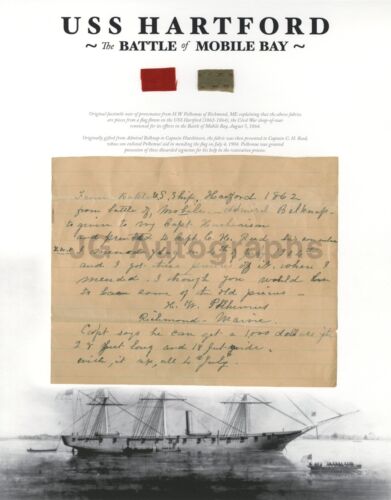 USS HARTFORD
~ The BATTLE of MOBILE BAY ~
Original facsimile note of provenance from H W Polhemus of Richmond, ME explaining that the above fabrics
are pieces from a flag flown on the USS Hartford (1862-1864), the Civil War sloop-of-war
renowned for its efforts in the Battle of Mobile Bay, August 5, 1864.
Originally gifted from Admiral Belknap to Captain Hutchinson, the fabric was then presented to Captain C. H. Reed,
who enlisted Polhemus' aid in mending the flag on July 4, 1904. Polhemus was granted
possession of these discarded segments for his help in the restoration process.
Ship, Hartford 1862
from battle of Mobile Admiral Belknap
given to my Capt Hutchinson
and to Capt C. H. Reed
and I got this of it, when I
mended. I though you would love
to have some of the old pieces
H. W. Polhemus
Richmond - Maine.
Capt says he can get a 1,000 dollars for
28 feet long and 18 feet wide.
July
JG Autographs